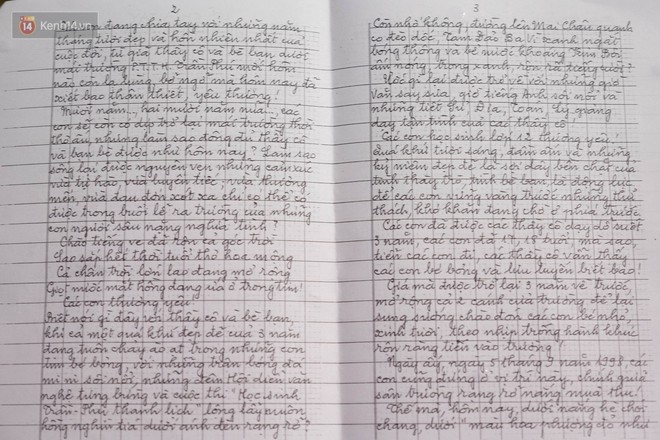 14 Kenh14.vn
2
con đang chia tay với những năm
tháng tươi đẹp và hồn nhiên nhất của
cuộc đời, từ giã thầy cô và bè bạn dưới
mái trường P.T.T.H Trần Phú mới hôm
nào còn lạ lùng, bỡ ngỡ mà hôm nay, đã
xiết bao thân thiết, yêu thương!
Mười năm... hai mươi năm nữa, các
con sẽ còn có dịp trở lại mái trường thời
thơ ấu, nhưng làm sao đông đủ thầy cô
và bạn bè được như hôm nay? Làm sao
sống lại được nguyên vẹn những cảm xúc
vừa tự hào, vừa luyến tiếc, vừa thương
mến, vừa đau đớn xót xa chỉ có thể có
được trong buổi lễ ra trường của những
con người sâu nặng nghĩa tình?
Chào tiếng ve đã rộn cả góc trời
Sao sắp hết thời tuổi thơ hoa mộng
Cả chân trời lớn lao đang mở rộng
Giọt nước mắt hồng đang ứa ở trong tim!
Các con thương yêu!
Biết nói gì đây với thầy cô và bè bạn,
khi cả một quá khứ đẹp đẽ của 3 năm
đang tuôn chảy ào ạt trong những con
tim bé bỏng, với những trận bóng đá
mi ni sôi nổi, những đêm Hội diễn văn
nghệ tưng bừng và cuộc thi "Học sinh
Trần Phú thanh lịch" lộng lẫy muôn
hồng nghìn tía dưới ánh đèn rạng rỡ?
3
Còn nhớ không, đường lên Mai Châu quanh
co đèo dốc, Tam Đảo Ba Vì xanh ngắt
bóng thông và bể nước khoáng Kim Bôi
ấm nóng, trong xanh, rộn rã tiếng cười?
Ước gì lại được trở về với những giờ
Văn say sưa, giờ tiếng Anh sôi nổi và
những tiết Sử, Địa, Toán, Lý giảng
dạy tận tình của các thầy cô!
Các con học sinh lớp 12 thương yêu!
Quá khứ tươi sáng, đầm ấm và những
kỷ niệm đẹp đẽ là sợi dây bền chặt của
tình thầy trò, tình bè bạn, là động lực
để các con vững vàng trước những thử
thách, khó khăn đang chờ ở phía trước.
Các con đã được các thầy cô dạy dỗ suốt
3 năm, các con đã 17, 18 tuổi, mà sao,
tiễn các con đi, các thầy cô vẫn thấy
các con bé bỏng và lưu luyến biết bao!
Giá mà được trở lại 3 năm về trước,
mở rộng cả 2 cánh cửa trường để lại
sung sướng chào đón các con bé nhỏ,
xinh tươi, theo nhịp trống hành khúc
rộn ràng tiến vào trường!
Ngày ấy, ngày 5 tháng 9 năm 1998, các
con cũng đứng ở vị trí này, chính giữa
sân trường rạng rỡ nắng mùa thu!
Thế mà, hôm nay, dưới nắng hè chói
chang, dưới "màu hoa phượng đỏ như